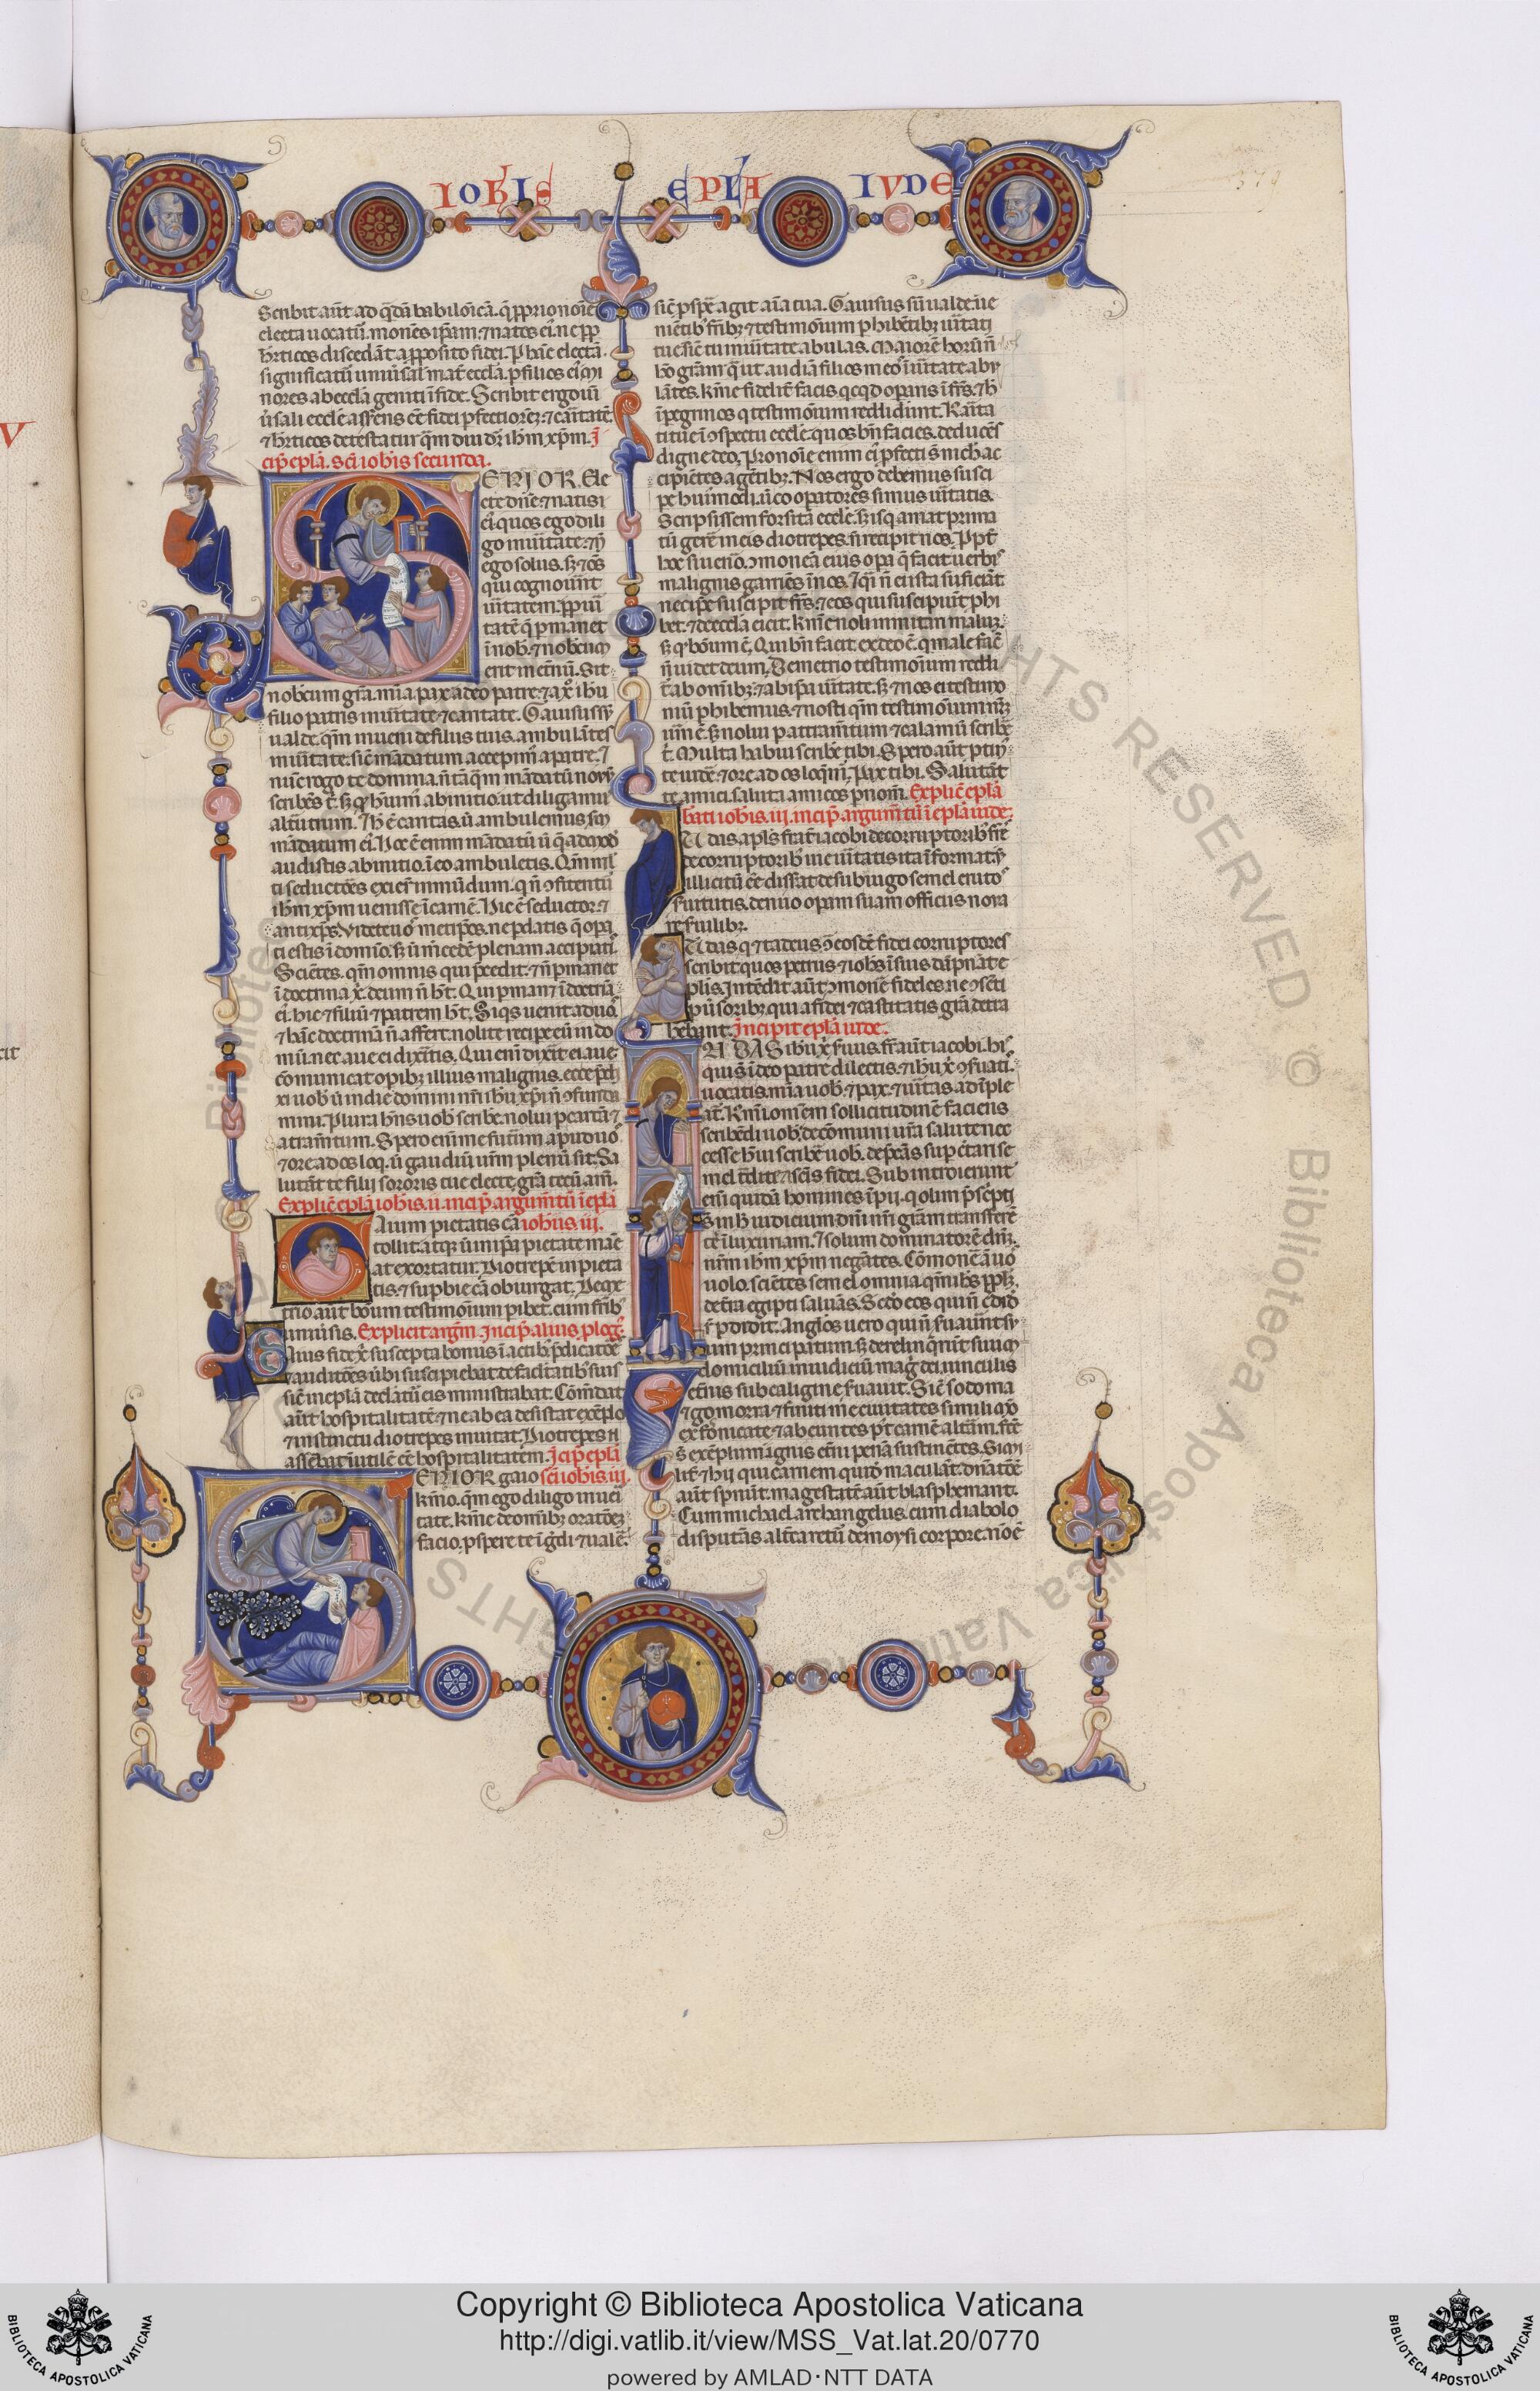 IOHIS EPLA IVDE
Scribit aūt ad q̄dā babilōicā. q̄ pprio noīe
electa uocatū. monēs ip̄am. ⁊ natos ei. ne pp
h̄eticos discedāt a pposito fidei. P hāc electā
significatū uniūsal mat̄ eccl̄a. p filios ei mi
nores ab eccl̄a geniti ī fide. Scribit ergo uī
ūsali eccl̄e asserens eē fidei pfectiorez. ⁊ caritatē.
⁊ h̄eticos detestatur qm̄ diuidūt ih̄m xp̄m. I
cip̄ epl̄a. sc̄i ioh̄is secunda.
SENIOR. Ele
cte dn̄e. ⁊ natis
ei. quos ego dili
go in ūitate. ⁊ nō
ego solus. sꝫ ⁊ oēs
qui cognouūnt
ūitatem. pp ueri
tatē q̄ pmanet
ī nob. ⁊ nobcūq
erit in etn̄ū. Sit
nobcum gr̄a. mīa. pax a deo patre. ⁊ a xp̄o ih̄u
filio patris in ūitate ⁊ caritate. Gauisus sū
ualde. qm̄ inueni de filiis tuis. ambulātes
in ūitate. sic mādatum accepim̄ a patre. Et
nūc rogo te domina. n̄ tāqm̄ mādatū nouū
scribēs t̄. sꝫ q̄ h̄uim̄ ab initio. ut diligam̄
alt̄utrum. Et h̄ ē caritas. ut ambulemus scdm
mādatum ei. Hoc ē enim mādatū ut q̄admodū
audistis ab initio. ī eo ambuletis. Qm̄ mlti
seductōes exier̄ in mūdum. q n̄ ɔfitentur
ih̄m xp̄m uenisse ī carnē. Hic ē seductor. ⁊
antixp̄s. Videte uosmetipōs. ne pdatis q̄ opa
ti estis ī domīo. sꝫ ut m̄cedē plenam accipiatis.
Sciētes. qm̄ omnis qui p̄cedit. ⁊ n̄ pmanet
ī doctrina xp̄i. deum n̄ h̄t. Qui pmanet ī doctrīa
ei. hic ⁊ filiū ⁊ patrem h̄t. Siqs uenit ad uos.
⁊ hāc doctrinā n̄ affert. nolite recipe eū in do
mū. nec aue ei dixitis. Qui enī dixit ei aue.
cōmunicat opibꝫ illius malignis. ecce p̄di
xi uob. ut in die domini nr̄i ih̄u xp̄i n̄ ɔfunda
mini. Plura h̄ns uob scribe. nolui p cartā ⁊
atramtum. Spero enim me futūm apud uos.
⁊ ore ad os loq. ut gaudiū ur̄m plenū sit. Sa
lutāt te filii sororis tue electe. gr̄a tecū am̄.
Explic̄ epl̄a ioh̄is. ii. incip̄ argum̄tū ī epl̄a
Gaium pietatis cā ioh̄is. iii.
tollit. atqꝫ ut in ip̄a pietate maneat
at exortatur. Diotrepē impieta
tis. ⁊ supbie cā obiurgat. Demetrio
trio aūt bonum testimonium pibet. cum frib
uniūsis. Explicit argm̄. Incip̄ alius plog.
Gaius fide xp̄i suscepta bonus ī actib. p̄dicatōes
⁊ auditōes ūbi suscipiebat. de facltatib suis
sic in epl̄a declatū eis ministrabat. Cōm̄dat
aūt hospitalitatē ⁊ ne ab ea desistat exēplo
⁊ instinctu diotrepes inuitat. Diotrepes n̄
assēbat utile eē hospitalitatem. Icip̄ epl̄a
SENIOR gaio sc̄i ioh̄is. iii.
kmo. qm̄ ego diligo in ueri
tate. kme de om̄ibꝫ oratōez
facio. pspere te īgdi ⁊ ualē.
sic pspe agit aīa tua. Gauisus sū ualde. ue
niētib frībꝫ ⁊ testimōium phibētibꝫ ūitati
tue. sic tu in ūitate abulas. Maiorē horum n̄
h̄o grām q̄ ut audiā filios meos ī ūitate abu
lātes. kme fidelit̄ facis. qcqd opans ī frēs. ⁊ h̄
ī pegrinos q testimōium reddidunt. Karita
ti tue ī ɔspectu eccl̄e. quos bn̄ facies. deducēs
digne deo. Pro noīe enim ei pfecti s̄. nich ac
cipiētes a gētibꝫ. Nos ergo debemus susci
pe huīmodi. ut coopatores simus ūitatis.
Scripsissem forsitā eccl̄e. sꝫ is q amat prima
tū gere in eis diotrepes. n̄ recipit nos. Ppt̄
hoc si uen̄o. ɔmonēā eius opa q̄ facit uerbis
malignis garriēs ī nos. Et qi n̄ ei ista sufficiāt
nec ip̄e suscipit frēs. ⁊ eos qui suscipiūt phi
bet. ⁊ de eccl̄a eicit. Kme noli imitari malum.
sꝫ q bonum ē. Qui bn̄ facit. ex deo ē. q male facit
n̄ uidet deum. Demetrio testimōium reddi
t̄ ab omībꝫ. ⁊ ab ip̄a ūitate. sꝫ ⁊ nos ei testimo
niū phibemus. ⁊ nosti qm̄ testimōium nr̄m
uer̄ ē. Multa habui scribe tibi. sꝫ nolui p atramtum ⁊ calamū scribe
t̄. Spero aūt ptin
te uide. ⁊ ore ad os loqm̄. Pax tibi. Salutāt
te amici. saluta amicos p nom̄. Explic̄ epl̄a
bati ioh̄is. iii. incip̄ argum̄tū ī epl̄a iude.
Iudas apl̄s frat̄ iacobi de corruptorib. frēs
de corruptorib. uie ūitatis ita īformat. ut
illicitū eē dissat de sub iugo semel erutos
suitutis. denuo opam suam officiis nora
re suilibꝫ.
Iudas q ⁊ tadeus ɔ eosdē fidei corruptores
scribit. quos petrus ⁊ ioh̄s ī suis dāpnāt e
pl̄is. Intēdit aūt ɔmonē fideles. ne ɔsēti
āt psuasoribꝫ. qui a fidei ⁊ castitatis gr̄a detra
hebant. Incipit epl̄a iude.
IUDAS ih̄u xp̄i suus. fr̄ aūt iacobi. his
qui s̄ ī deo patre dilectis. ⁊ ih̄u xp̄o ɔseruatis.
uocatis. mīa uob. ⁊ pax. ⁊ caritas adīple
at̄. Kmi omem sollicitudinē faciens
scribēdi uob. de cōmuni ur̄a salute. nec
cesse h̄ui scribē uob. depcās supc̄tari se
mel t̄dite ⁊ scis fidei. Subintroierunt
enī quidā homines īpii. q olim p̄scpti
s̄ in h̄ iudicium. dni nr̄i grām transferē
tes ī luxuriam. ⁊ solum dominatorē ⁊ dn̄m
nr̄m ih̄m xp̄m negātes. Cōmonē āt uos
uolo. sciētes semel omnia. qm̄ ih̄s pplm
de tr̄a egipti saluās. Scdo eos qui n̄ c̄did
r̄t pdidit. Anglos uero qui n̄ suaūnt su
um principatum. sꝫ derelinq̄rūt suum
domicilium. in iudiciū mag dei. uinculis
etn̄is sub caligine suauit. Sic sodoma
⁊ gomorra. ⁊ finitime ciuitates simili mo
exfornicate. ⁊ abeuntes p̄ carnē altām. fc̄e
s̄ exēplum ignis etn̄i penā sustinētes. Simi
lit̄ ⁊ hii qui carnem quidē maculāt. dnatōē
aūt spnūt. magestatē aūt blasphemant.
Cum michael archangelus. cum diabolo
disputās altcaretū de moysi corpore. nō ē
Copyright © Biblioteca Apostolica Vaticana
http://digi.vatlib.it/view/MSS_Vat.lat.20/0770
powered by AMLAD·NTT DATA
BIBLIOTECA APOSTOLICA VATICANA
BIBLIOTECA APOSTOLICA VATICANA